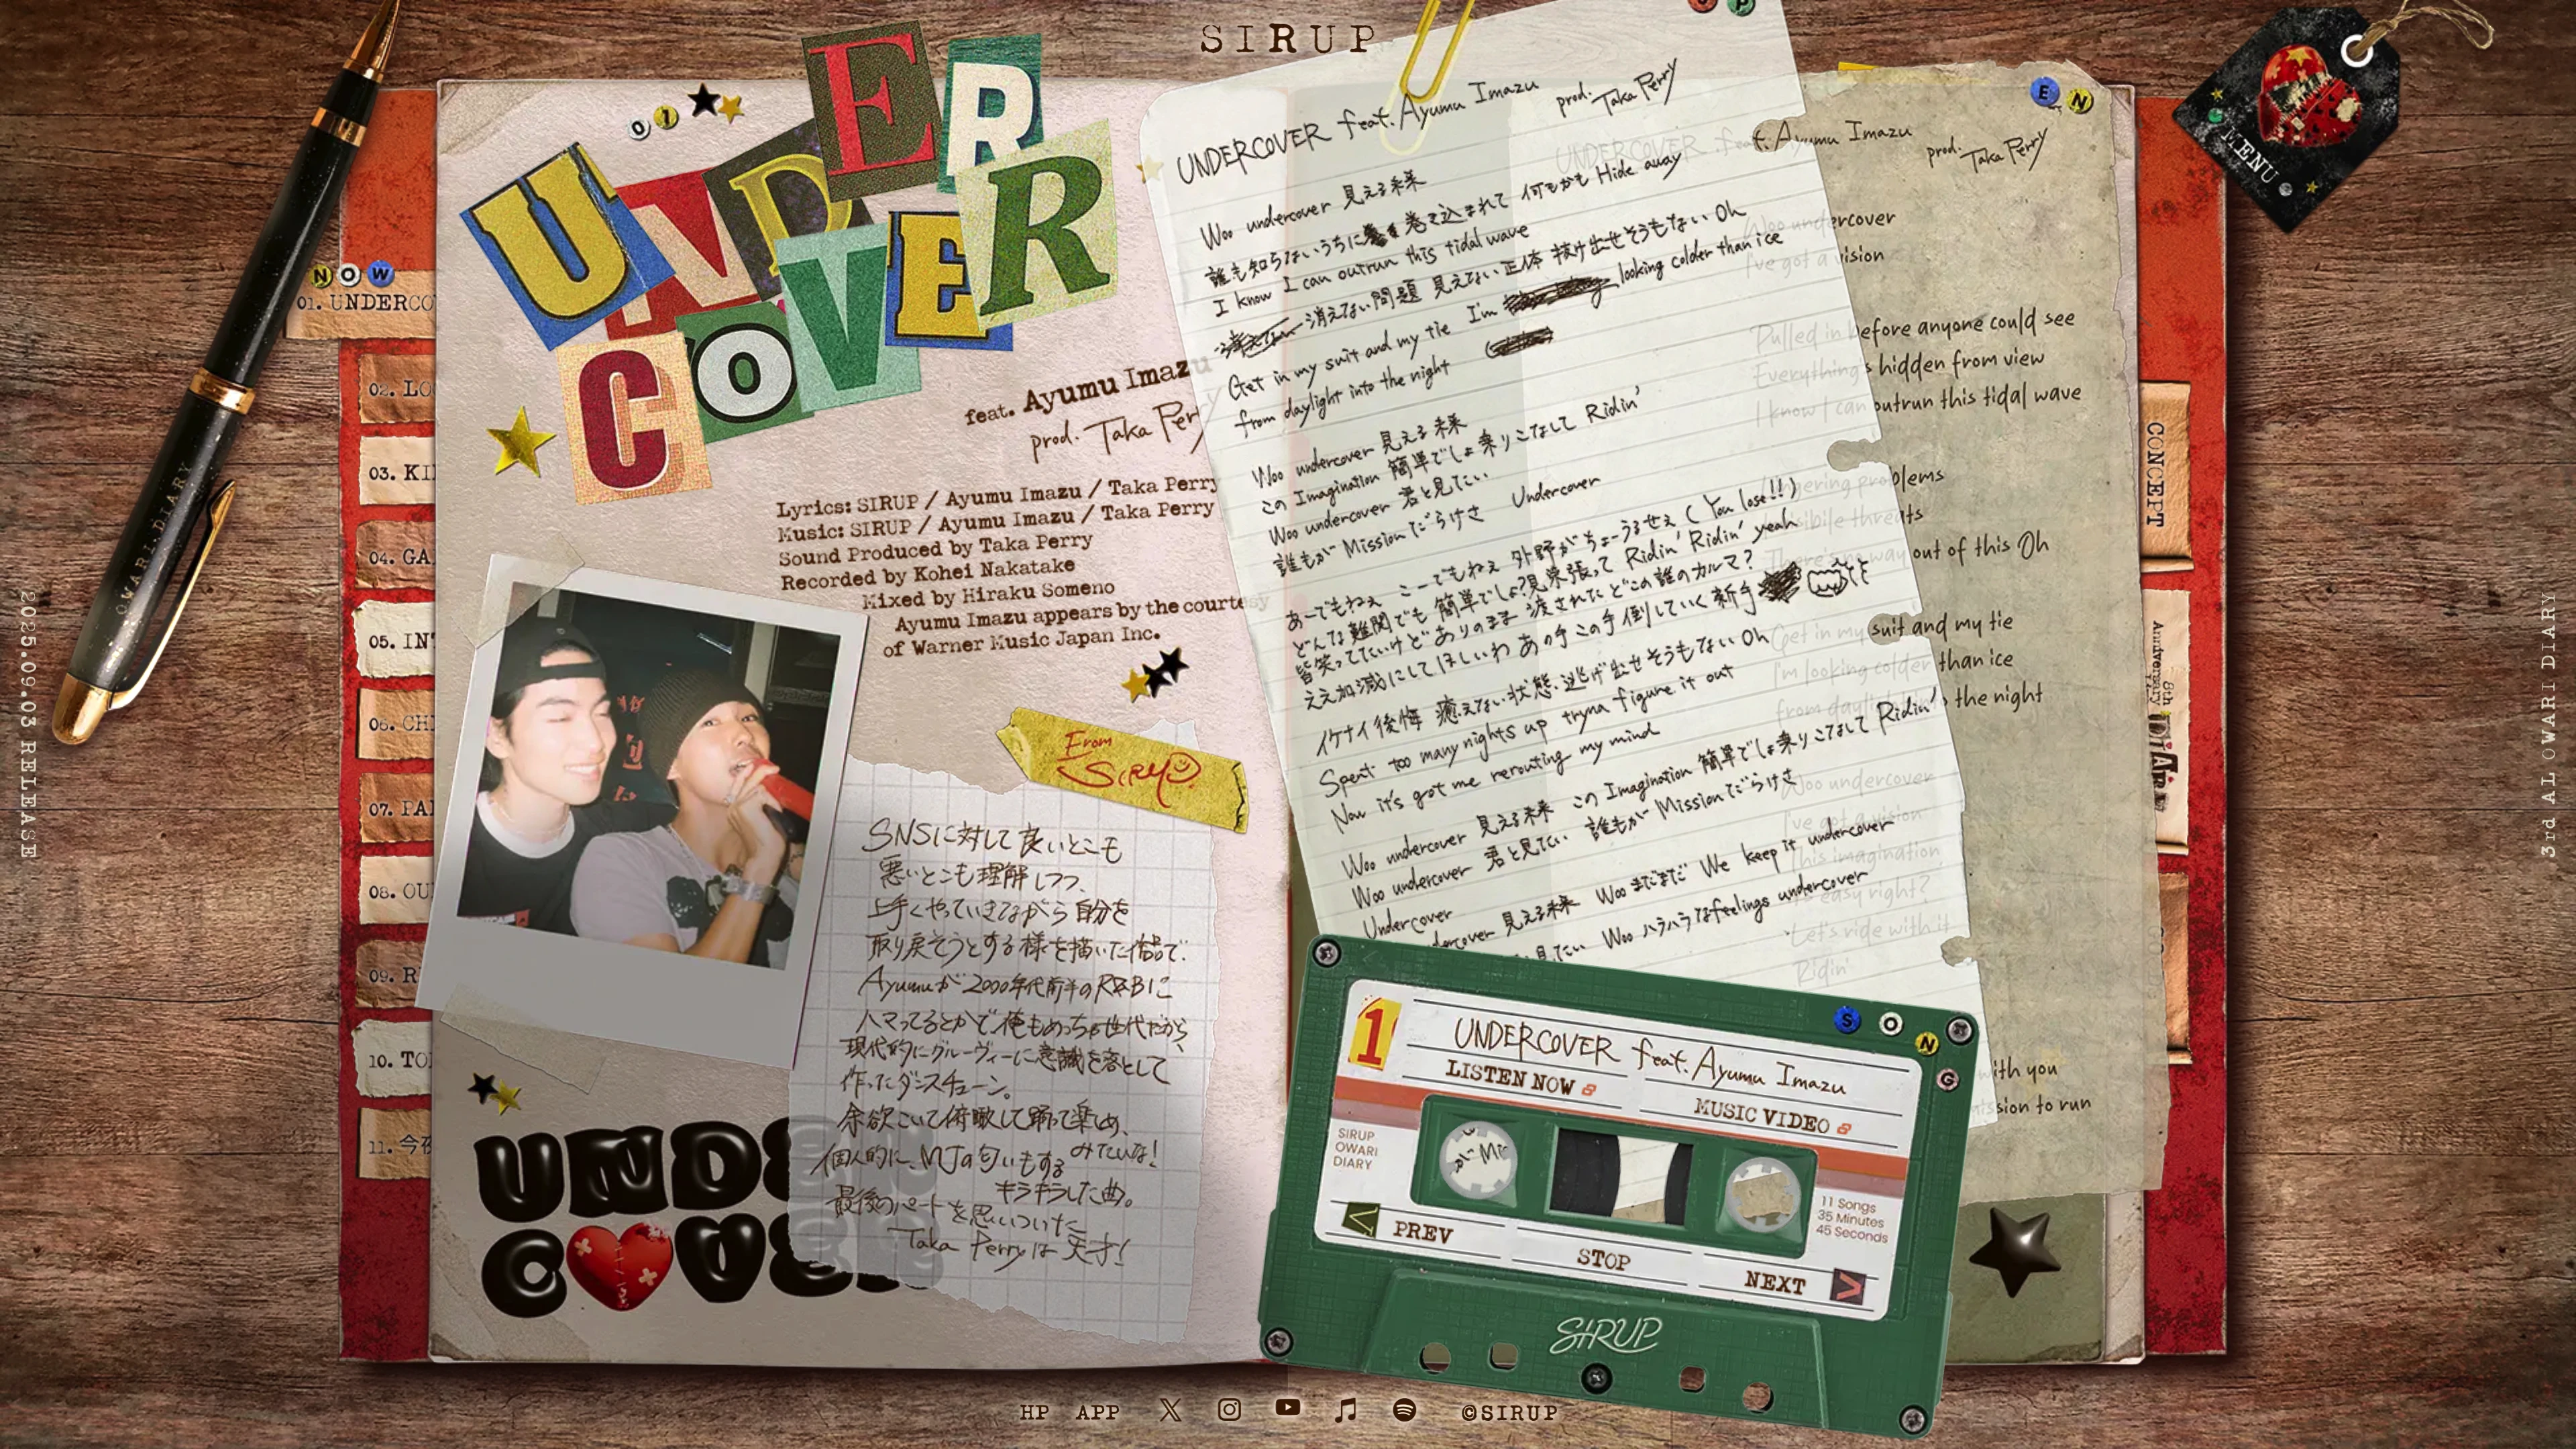 SIRUP
01
UNDER
COVER
feat. Ayumu Imazu
prod. Taka Perry
Lyrics: SIRUP / Ayumu Imazu / Taka Perry
Music: SIRUP / Ayumu Imazu / Taka Perry
Sound Produced by Taka Perry
Recorded by Kohei Nakatake
Mixed by Hiraku Someno
Ayumu Imazu appears by the courtesy
of Warner Music Japan Inc.
From
SIRUP
SNSに対して良いとこも
悪いとこも理解しつつ、
上手くやっていきながら自分を
取り戻そうとする様を描いた作品で、
Ayumuが2000年代前半のR&Bに
ハマってるとかで俺もめっちゃ世代だから、
現代的にグルーヴィーに意識を落として
作ったダンスチューン。
余欲こいて俯瞰して踊って楽しめ、みたいな!
個人的に、MJの匂いもする
キラキラした曲。
最後のパートを思いついた
Taka Perryは天才!
UNDE
COVE
NOW
01. UNDERCO
02. LO
03. KI
04. GA
05. INT
06. CH
07. PA
08. OU
09. R
10. TO
11. 今夜
OWARI DIARY
2025.09.03 RELEASE
UNDERCOVER feat. Ayumu Imazu prod. Taka Perry
Woo undercover 見える未来
誰も知らないうちに 巻き込まれて 何もかも Hide away
I know I can outrun this tidal wave
消えない問題 見えない正体 抜け出せそうもない Oh
Get in my suit and my tie I'm looking colder than ice
from daylight into the night
Woo undercover 見える未来
この Imagination 簡単でしょ 乗りこなして Ridin'
Woo undercover 君と見てたい
誰もが Missionだらけさ Undercover
あーでもねぇ こーでもねぇ 外野がちょーうるせぇ (You lose!!)
どんな難関でも 簡単でしょ? 見栄張って Ridin' Ridin' yeah
皆笑ってたいけど ありのまま 渡されたどこの誰のカルマ?
ええ加減にしてほしいわ あの手この手 倒していく新手
イケナイ後悔 癒えない状態 逃げ出せそうもない Oh
Spent too many nights up tryna figure it out
Now it's got me rerouting my mind
Woo undercover 見える未来 この Imagination 簡単でしょ 乗りこなして Ridin'
Woo undercover 君と見てたい 誰もが Missionだらけさ
Undercover
dercover 見える未来 Woo まだまだ We keep it undercover
見てたい Woo ハラハラなfeelings undercover
EN
UNDERCOVER feat. Ayumu Imazu
prod. Taka Perry
Woo undercover
I've got a vision
Pulled in before anyone could see
Everything's hidden from view
I know I can outrun this tidal wave
gering problems
isibile threats
There's no way out of this Oh
Get in my suit and my tie
I'm looking colder than ice
from daylight into the night
Woo undercover
I've got a vision
This imagination
easy right?
Let's ride with it
Ridin'
with you
mission to run
1
UNDERCOVER feat. Ayumu Imazu
SONG
LISTEN NOW
MUSIC VIDEO
SIRUP
OWARI
DIARY
11 Songs
35 Minutes
45 Seconds
PREV
STOP
NEXT
SIRUP
MENU
CONCEPT
8th
Anniversary
3rd AL OWARI DIARY
HP
APP
©SIRUP